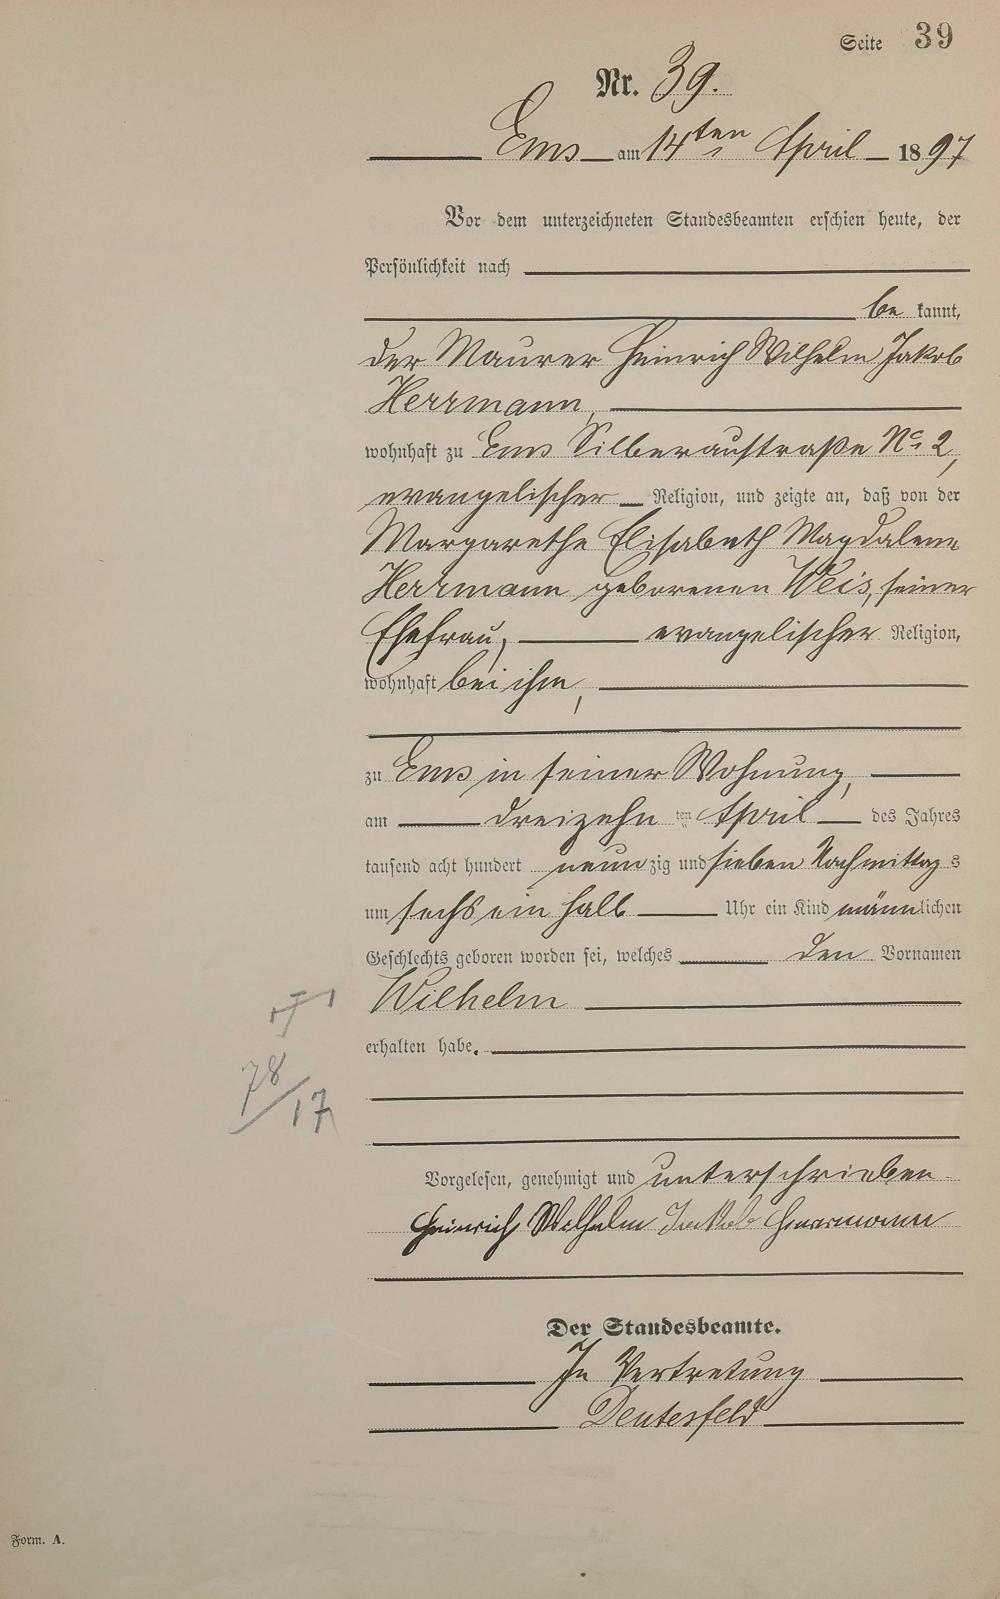 Seite 39
Nr. 39.
Ems am 14ten April 1897
Vor dem unterzeichneten Standesbeamten erschien heute, der
Persönlichkeit nach
be kannt,
der Maurer Heinrich Wilhelm Jakob
Herrmann,
wohnhaft zu Ems Silberaustraße No 2,
evangelischer Religion, und zeigte an, daß von der
Margarethe Elisabeth Magdalene
Herrmann geborenen Weis, seiner
Ehefrau, evangelischer Religion,
wohnhaft bei ihm,
zu Ems in seiner Wohnung,
am dreizehn ten April des Jahres
tausend acht hundert neunzig und sieben Nachmittag s
um sechs ein halb Uhr ein Kind männlichen
Geschlechts geboren worden sei, welches den Vornamen
Wilhelm
erhalten habe.
78/17
Vorgelesen, genehmigt und unterschrieben
Heinrich Wilhelm Jakob Herrmann
Der Standesbeamte.
In Vertretung
Deutesfeld
Form. A.